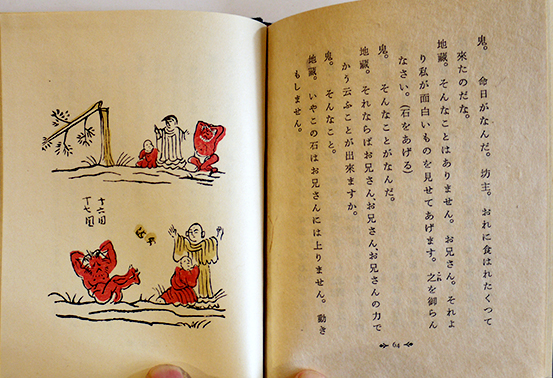 鬼。　命日がなんだ。坊主。おれに食はれたくつて
来たのだな。
地蔵。そんなことはありません。お兄さん。それよ
り私が面白いものを見せてあげます。之を御らん
なさい。（石をあげる）
鬼。　そんなことがなんだ。
地蔵。それならばお兄さん、お兄さんの力で
かう云ふことが出来ますか。
鬼。　そんなこと。
地蔵。いやこの石はお兄さんには上りません。動き
もしません。
64